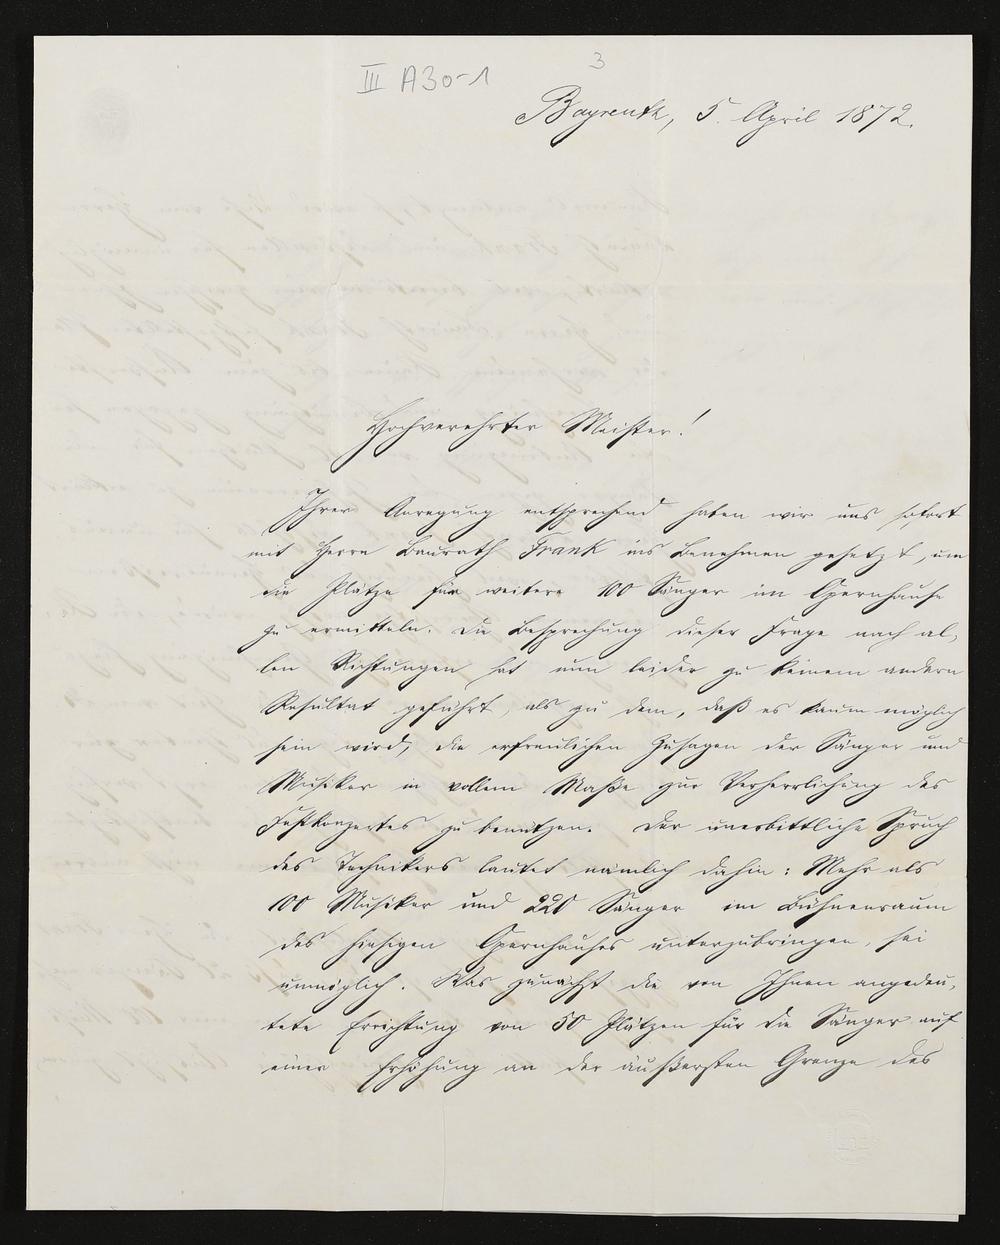 III A 30-1
3
Bayreuth, 5. April 1872.
Hochverehrter Meister!
Ihrer Anregung entsprechend haben wir uns sofort
mit Herrn Baurath Frank ins Benehmen gesetzt, um
die Plätze für weitere 100 Sänger im Opernhause
zu ermitteln. Die Besprechung dieser Frage nach al-
len Richtungen hat nun leider zu keinem andern
Resultat geführt, als zu dem, daß es kaum möglich
sein wird, die erfreulichen Zusagen der Sänger und
Musiker in vollem Maße zur Verherrlichung des
Festkonzertes zu benützen. Der unerbittliche Spruch
des Technikers lautet nämlich dahin: Mehr als
100 Musiker und 220 Sänger im Bühnenraum
des hiesigen Opernhauses unterzubringen, sei
unmöglich. Was zunächst die von Ihnen angedeu-
tete Errichtung von 50 Plätzen für die Sänger auf
einer Erhöhung an der äußersten Grenze des